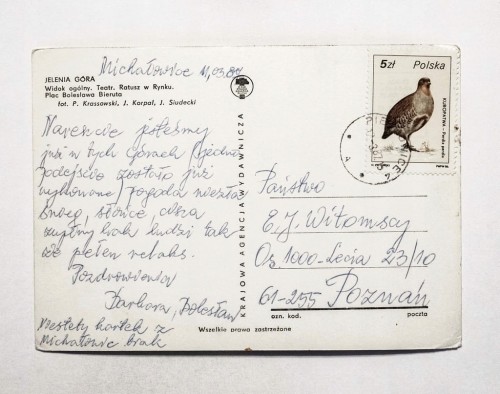 Michałowice 11,03,87
JELENIA GÓRA
Widok ogólny. Teatr. Ratusz w Rynku.
Plac Bolesława Bieruta
fot. P. Krassowski, J. Korpal, J. Siudecki
Nareszcie jesteśmy
już w tych górach (jedno
podejście zostało już
wykonane) pogoda niezła
śnieg, słońce, cisza
zupełny brak ludzi tak
że pełen relaks.
Pozdrowienia
Barbara, Bolesław
Niestety kartek z
Michałowic brak
KRAJOWA AGENCJA WYDAWNICZA
5 zł Polska
KUROPATWA - Perdix perdix
PIECHOWICE
A
Państwo
E.J. Witomscy
Os. 1000-Lecia 23/10
61-255 Poznań
ozn. kod. poczta
Wszelkie prawa zastrzeżone